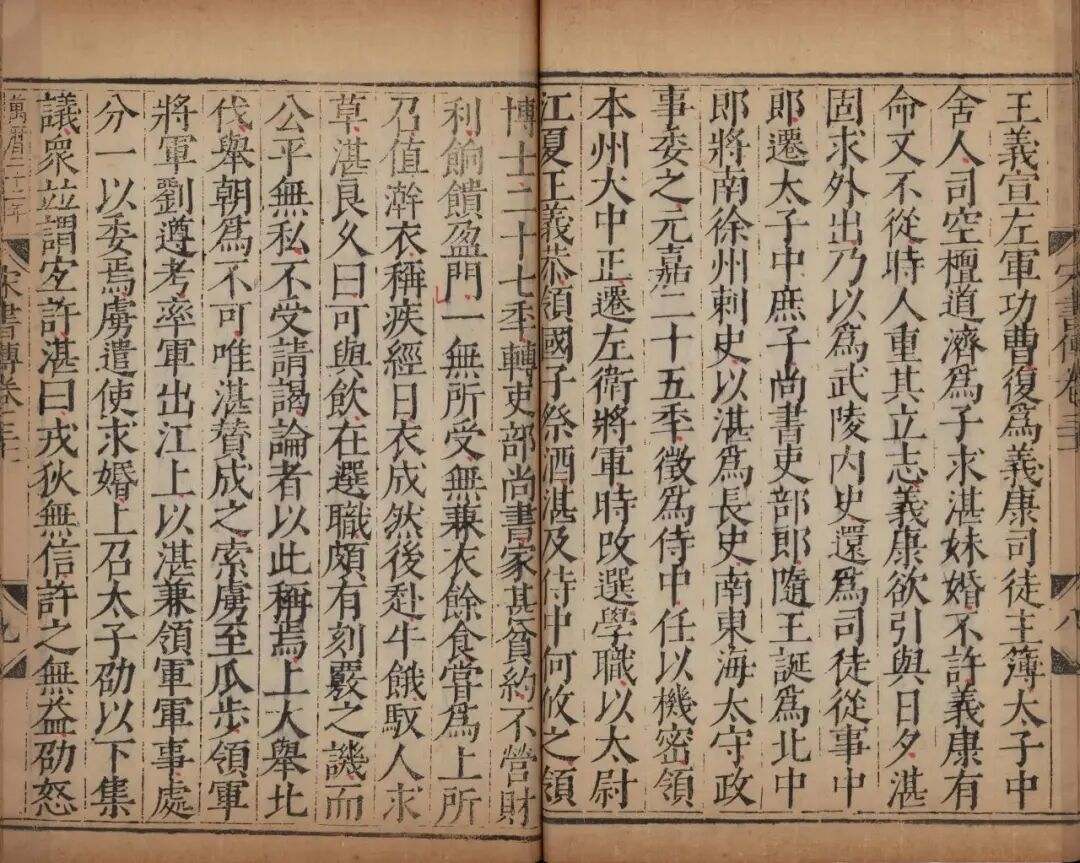 宋書傳卷三十一
八
王義宣左軍功曹復爲義康司徒主簿太子中
舍人司空檀道濟爲子求湛妹婚不許義康有
命又不從時人重其立志義康欲引與日夕湛
固求外出乃以爲武陵內史還爲司徒從事中
郎遷太子中庶子尚書吏部郎隨王誕爲北中
郎將南徐州刺史以湛爲長史南東海太守政
事委之元嘉二十五季徵爲侍中任以機密領
本州大中正遷左衛將軍時改選學職以太尉
江夏王義恭領國子祭酒湛及侍中何攸之領
博士二十七季轉吏部尚書家甚貧約不營財
利餉饋盈門一無所受無兼衣餘食嘗爲上所
召值澣衣稱疾經日衣成然後赴牛餓馭人求
草湛良久曰可與飲在選職頗有刻覈之譏而
公平無私不受請謁論者以此稱焉上大舉北
伐舉朝爲不可唯湛贊成之索虜至瓜步領軍
將軍劉遵考率軍出江上以湛兼領軍軍事處
分一以委焉虜遣使求婚上召太子劭以下集
議衆並謂宜許湛曰戎狄無信許之無益劭怒
萬曆二十二年
宋書傳卷三十一
九